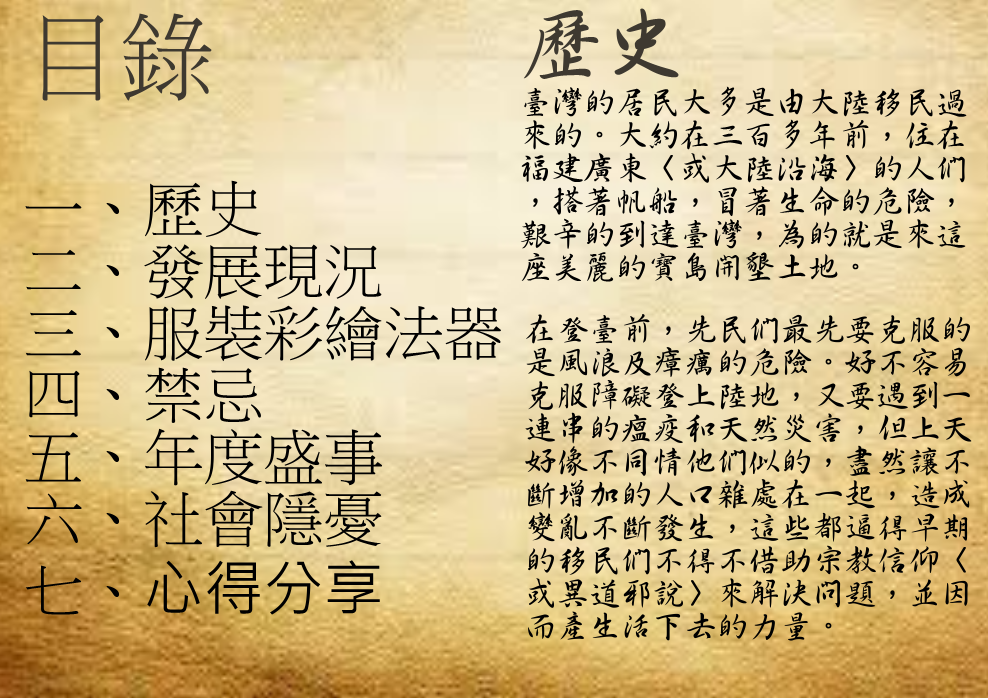 目錄
一、歷史
二、發展現況
三、服裝彩繪法器
四、禁忌
五、年度盛事
六、社會隱憂
七、心得分享
歷史
臺灣的居民大多是由大陸移民過
來的。大約在三百多年前，住在
福建廣東〈或大陸沿海〉的人們
，搭著帆船，冒著生命的危險，
艱辛的到達臺灣，為的就是來這
座美麗的寶島開墾土地。
在登臺前，先民們最先要克服的
是風浪及瘴癘的危險。好不容易
克服障礙登上陸地，又要遇到一
連串的瘟疫和天然災害，但上天
好像不同情他們似的，盡然讓不
斷增加的人口雜處在一起，造成
變亂不斷發生，這些都逼得早期
的移民們不得不借助宗教信仰〈
或異道邪說〉來解決問題，並因
而產生活下去的力量。